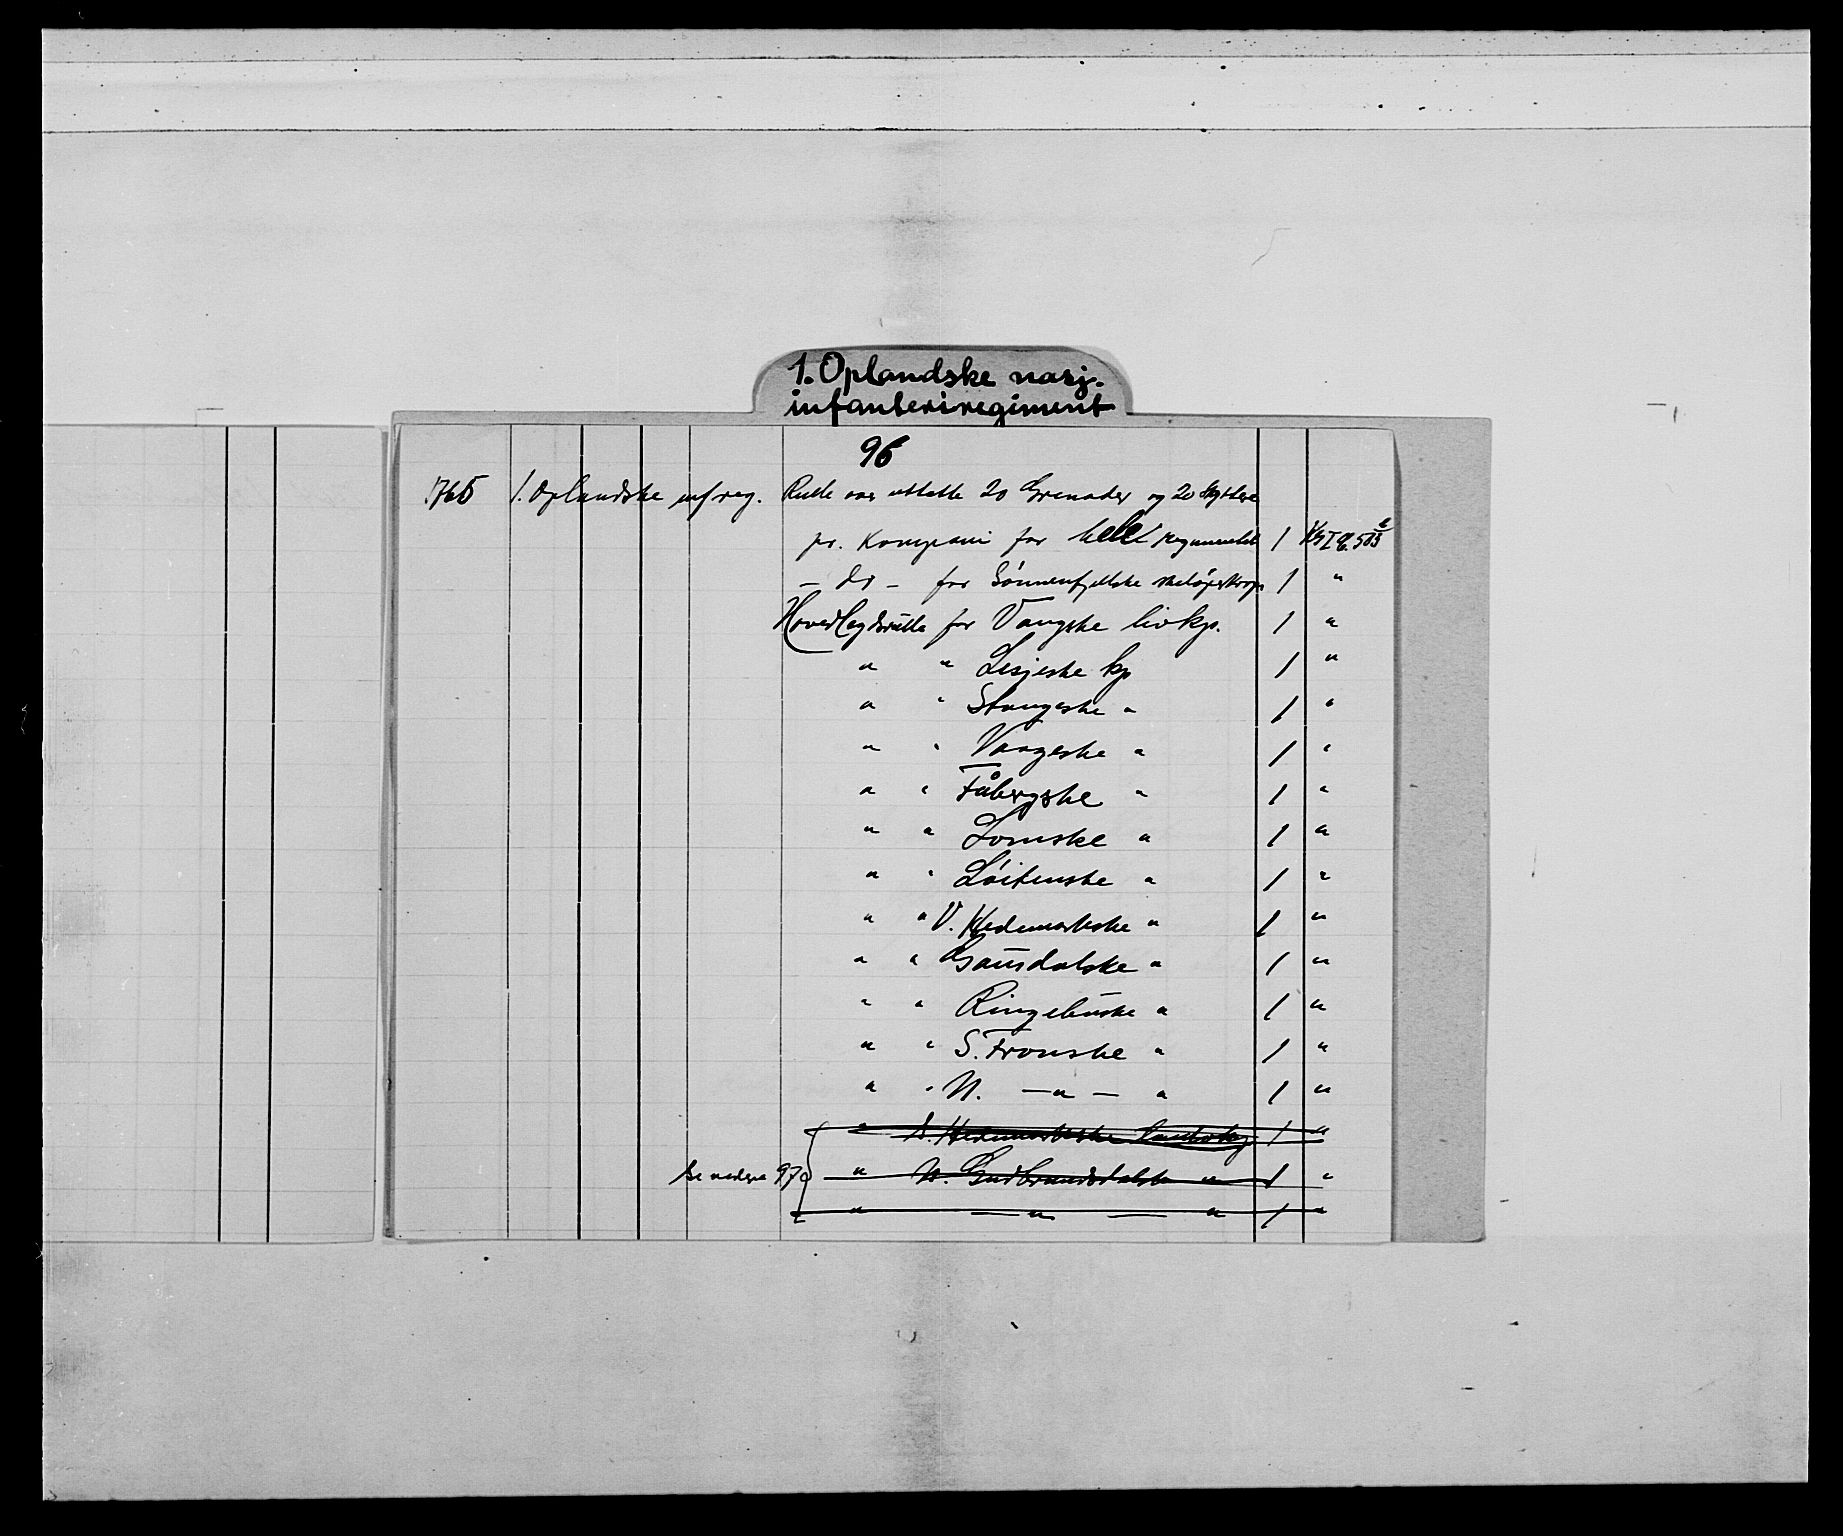 1. Oplandske nasj.
infanteriregiment
96
1765 1. Oplandske inf reg. Rulle over uttatte 20 Grenader og 20 Skyttere
pr. Kompani for hele regimentet 1
— do — for Sönnenfjellske skilöperkorps 1 "
Hovedlegdsrulle for Vangske livkp. 1 "
" " Lesjeske kp 1 "
" " Stangeske " 1 "
" " Vangeske " 1 "
" " Fåbergske " 1 "
" " Lomske " 1 "
" " Löitenske " 1 "
" " V. Hedemarkske " 1 "
" " Gausdalske " 1 "
" " Ringebuske " 1 "
" " S. Fronske " 1 "
" " N. — " — " 1 "
" S. Hedemarkske landvkp 1 "
Se nedre 97a " N. Gudbrandsdalske " 1 "
" — " — " 1 "